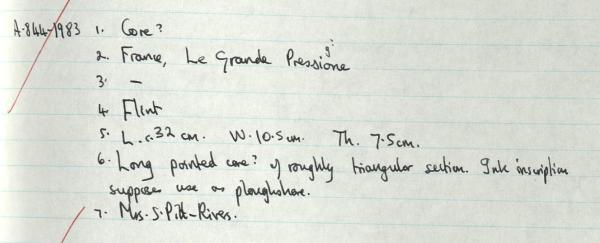 A.844-1983 1. Core?
2. France, Le Grande Pressigne
3. —
4. Flint
5. L. c.32 cm. W. 10.5 cm. Th. 7.5 cm.
6. Long pointed core? of roughly triangular section. Ink inscription
supposes use as ploughshare.
7. Mrs. S. Pitt-Rivers.